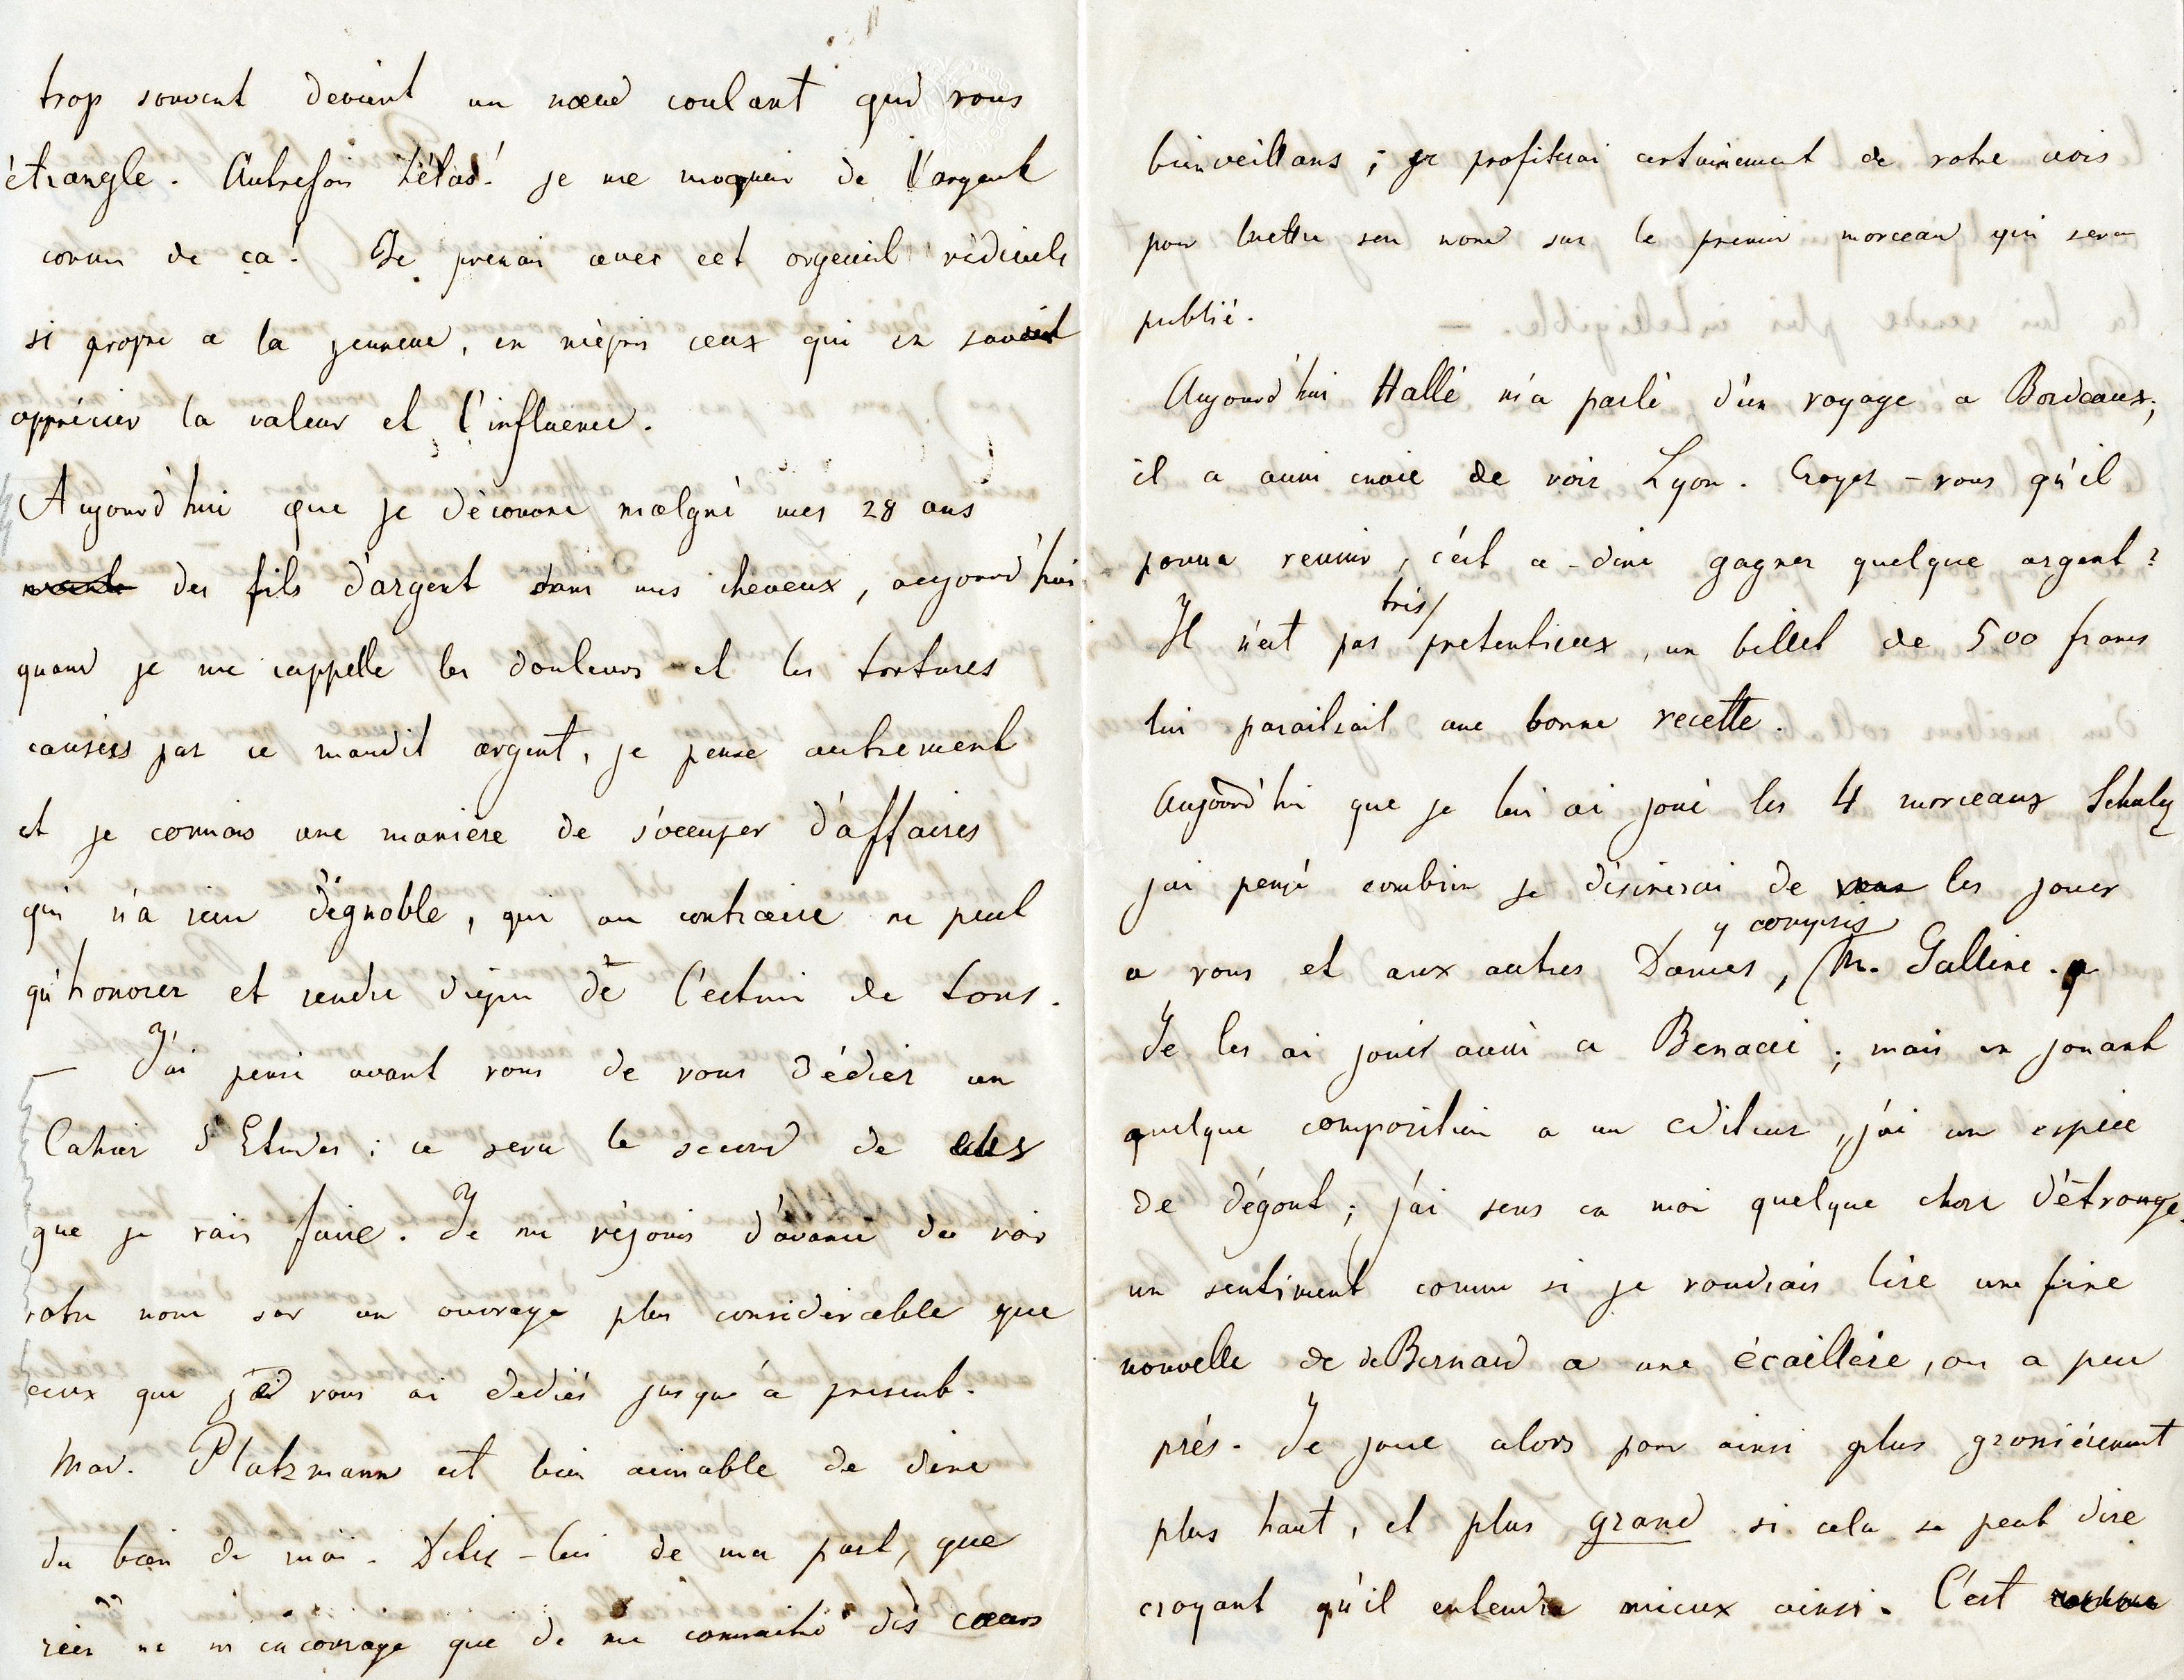 trop souvent devient un nœud coulant qui vous
étrangle. Autrefois hélas! je me moquais de l'argent
comme de ça! Je prenais avec cet orgeuil ridicule
si propre a la jeunesse, en mépris ceux qui en savent
apprécier la valeur et l'influence.
Aujourd'hui que je découvre malgré mes 28 ans
des fils d'argent dans mes cheveux, aujourd'hui
quand je me rappelle les douleurs et les tortures
causées par ce maudit argent, je pense autrement
et je connais une manière de s'occuper d'affaires
qui n'a rien d'ignoble, qui au contraire ne peut
qu'honorer et rendre digne de l'estime de tous.
— J'ai pensé avant vous de vous dédier un
Cahier d'Etudes; ce sera le second de
que je vais faire. Je me réjouis d'avance de voir
votre nom sur un ouvrage plus considérable que
ceux que je vous ai dediés jusqu'à present.
Mad. Platzmann est bien aimable de dire
du bien de moi. Dites-lui de ma part, que
rien ne m'encourage que de me connaitre des cœurs
bienveillans; je profiterai certainement de votre avis
pour mettre son nom sur le premier morceau qui sera
publié.
Aujourd'hui Hallé m'a parlé d'un voyage a Bordeaux;
il a aussi envie de voir Lyon. Croyez-vous qu'il
pourra reussir, c'est a-dire gagner quelque argent?
Il n'est pas très pretentieux, un billet de 500 francs
lui paraitrait une bonne recette.
Aujourd'hui que je lui ai joué les 4 morceaux Schulz
j'ai pensé combien je désirerai de les jouer
a vous et aux autres Dames, y compris M. Galline.
Je les ai joués aussi a Benacci; mais en jouant
quelque composition a un editeur, j'ai un espèce
de dégout; j'ai sens en moi quelque chose d'étrange,
un sentiment comme si je voudrais lire une fine
nouvelle de de Bernard a une écaillère, ou a peu
près. Je joue alors pour ainsi plus grossièrement
plus haut, et plus grand si cela se peut dire
croyant qu'il entendra mieux ainsi. C'est